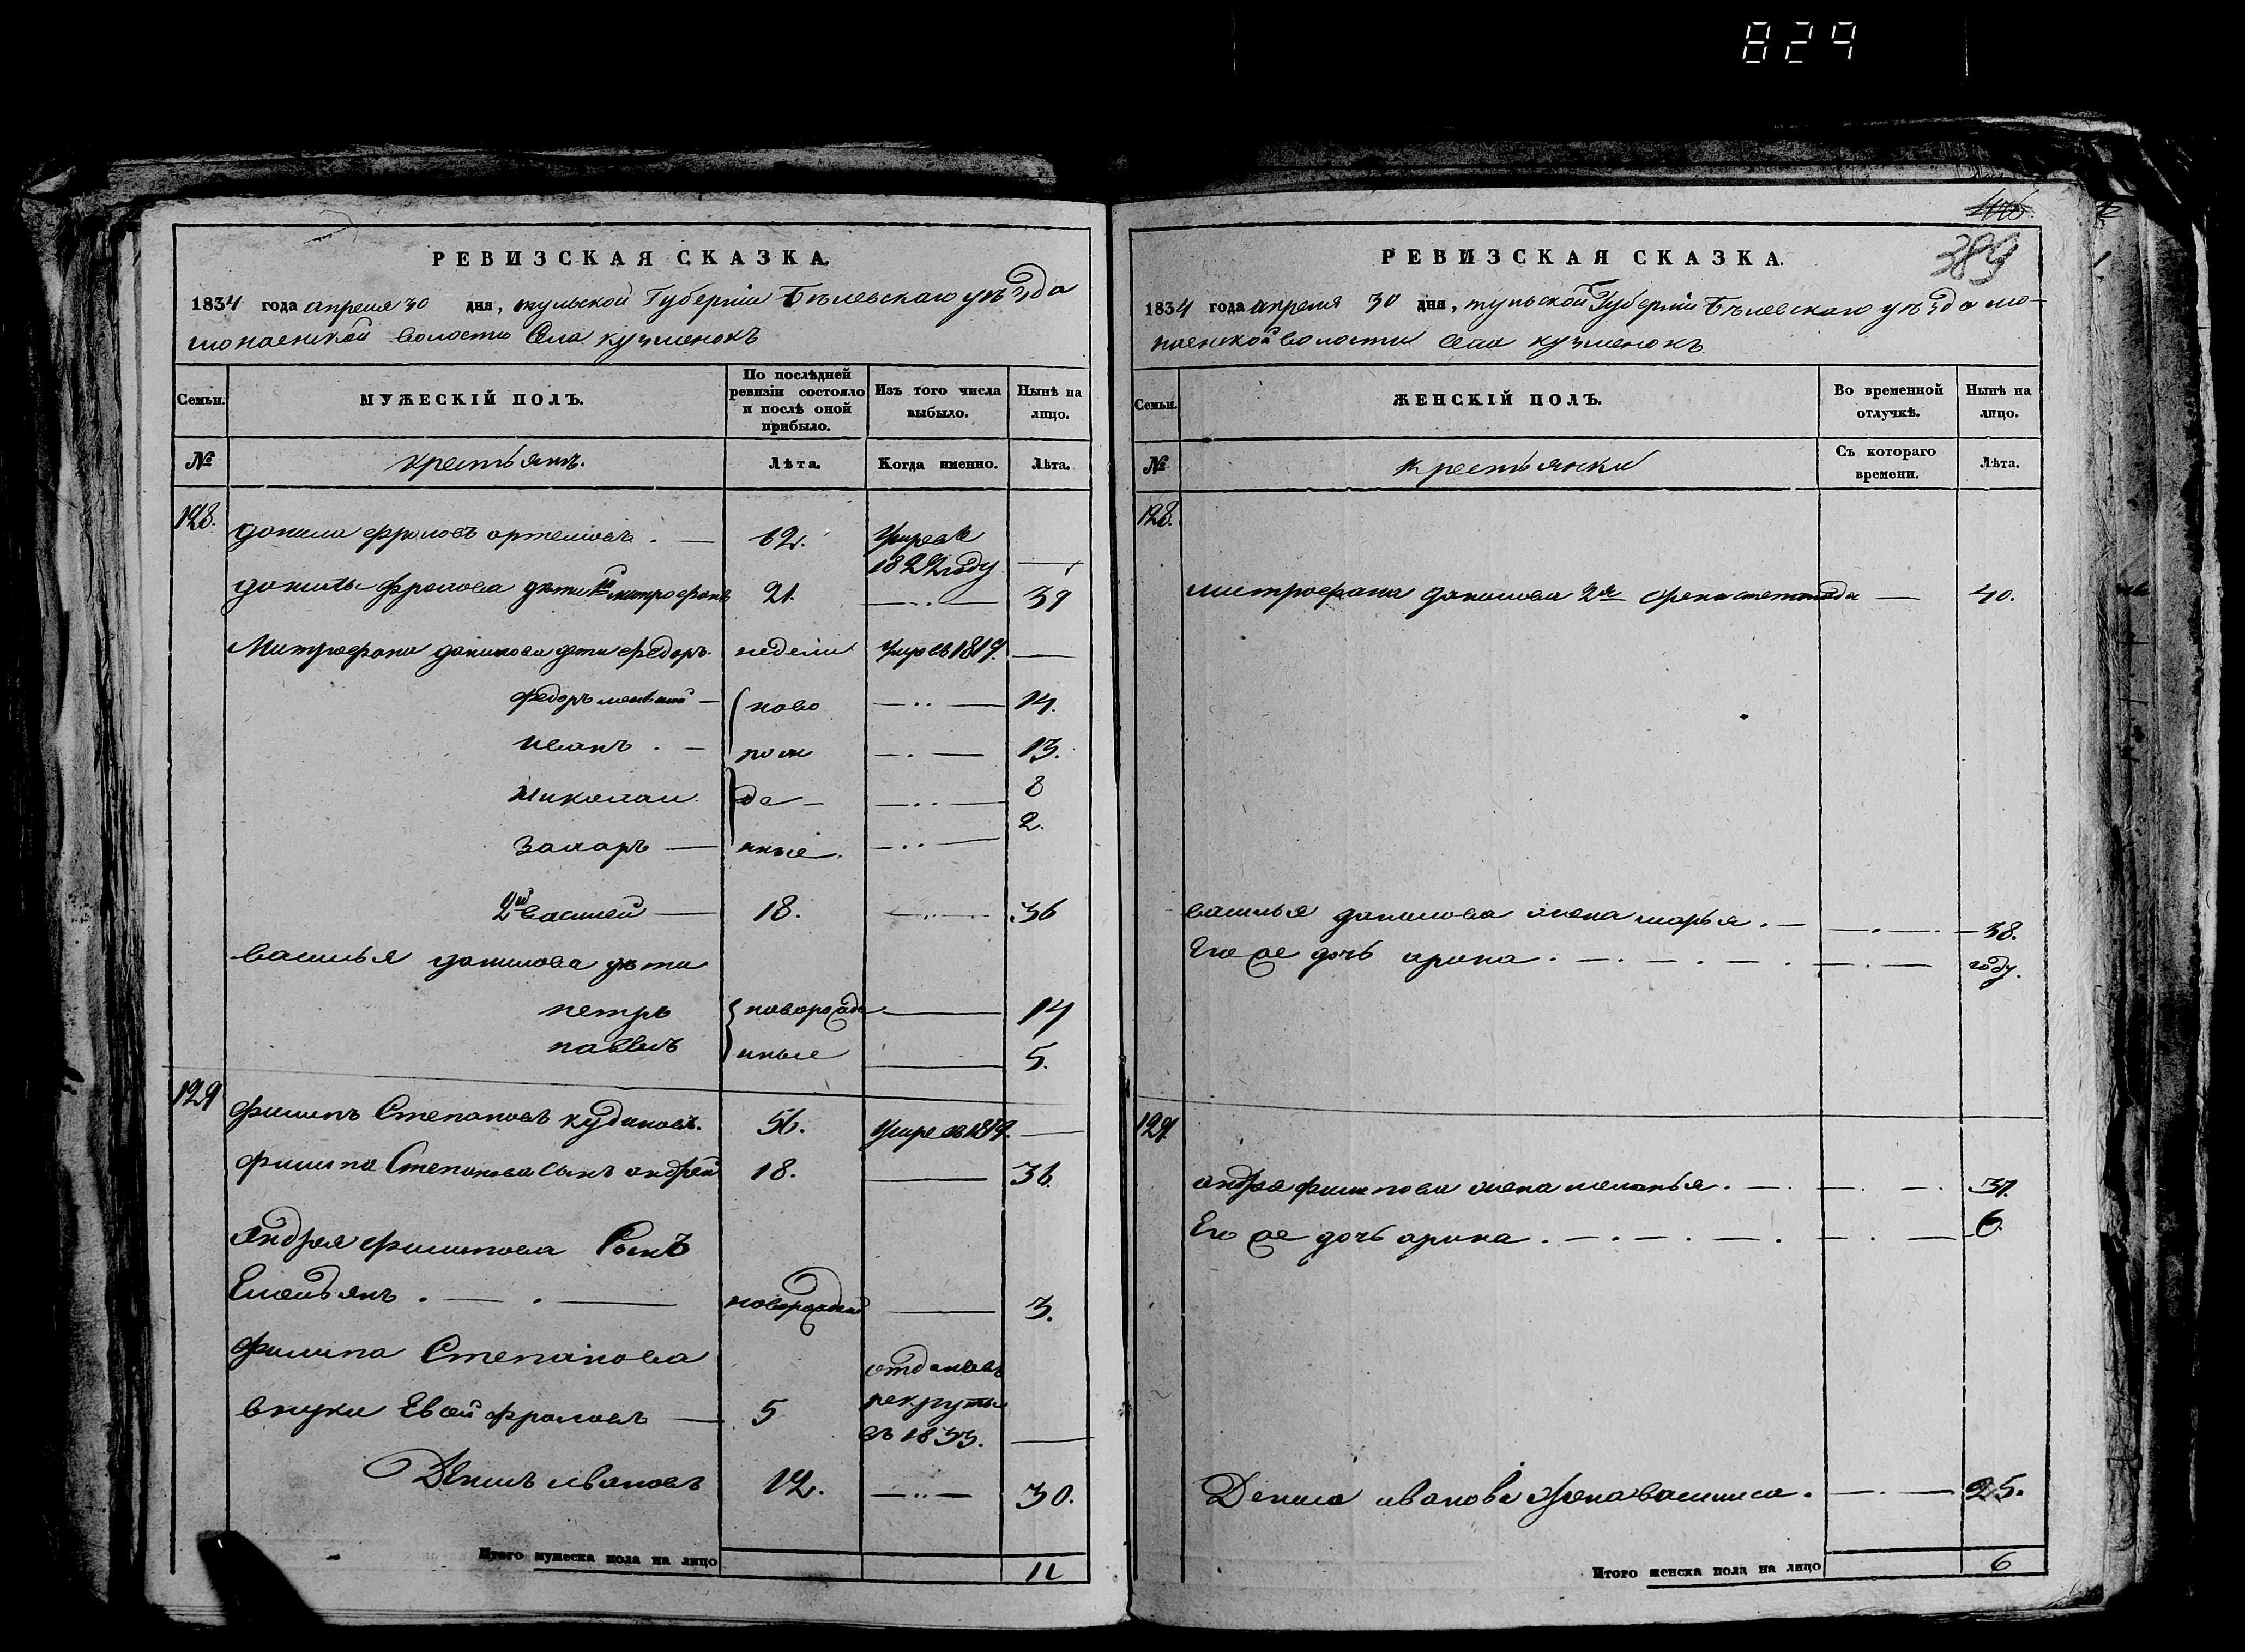 829
РЕВИЗСКАЯ СКАЗКА.
1834 года апреля 30 дня, тульской Губернiи Бѣлевскаго уѣзда
волости Села кузменокъ
Семьи.
МУЖЕСКІЙ ПОЛЪ.
По послѣдней ревизіи состояло и послѣ оной прибыло.
Изъ того числа выбыло.
Нынѣ на лицо.
№
крестьянъ.
Лѣта.
Когда именно.
Лѣта.
128.
данила фроловъ артемовъ. — 62. умре въ
1822 году —
данилы фролова дѣти 1й митрофанъ 21. — 39
Митрофана данилова дѣти федоръ. недели умре въ 1819. —
федоръ меньшой — ново — 14.
иванъ. — рож — 13.
николаи. де — — 8
захаръ — нные. — 2.
2й василей — 18. — 36
василья данилова дѣти
петръ новорожде — 14
павелъ нные — 5.
129
филипъ Степановъ кудиновъ. 56. умре въ 1819. —
филипа Степанова сынъ андрей 18. — 36.
Андрея филипова Сынъ
Емельянъ. — . — новорожденой — 3.
филипа Степанова
отданъ въ
внуки Евсей фроловъ — 5 рекруты
въ 1833. —
Денисъ ивановъ 12. — 30.
Итого мужеска пола на лицо 11
406.
389
РЕВИЗСКАЯ СКАЗКА.
1834 года апреля 30 дня, тульской Губернiи Бѣлевскаго уѣзда
волости села кузменокъ
Семьи.
ЖЕНСКІЙ ПОЛЪ.
Во временной отлучкѣ.
Нынѣ на лицо.
№
крестьянки
Съ котораго времени.
Лѣта.
128.
митрофана данилова 2я жена — 40.
василья данилова жена марья. — 38.
Его же дочь арина. — году.
129
андрея филипова жена меланья. — 37.
Его же дочь арина. — 6.
Дениса иванова жена василиса. — 25.
Итого женска пола на лицо 6